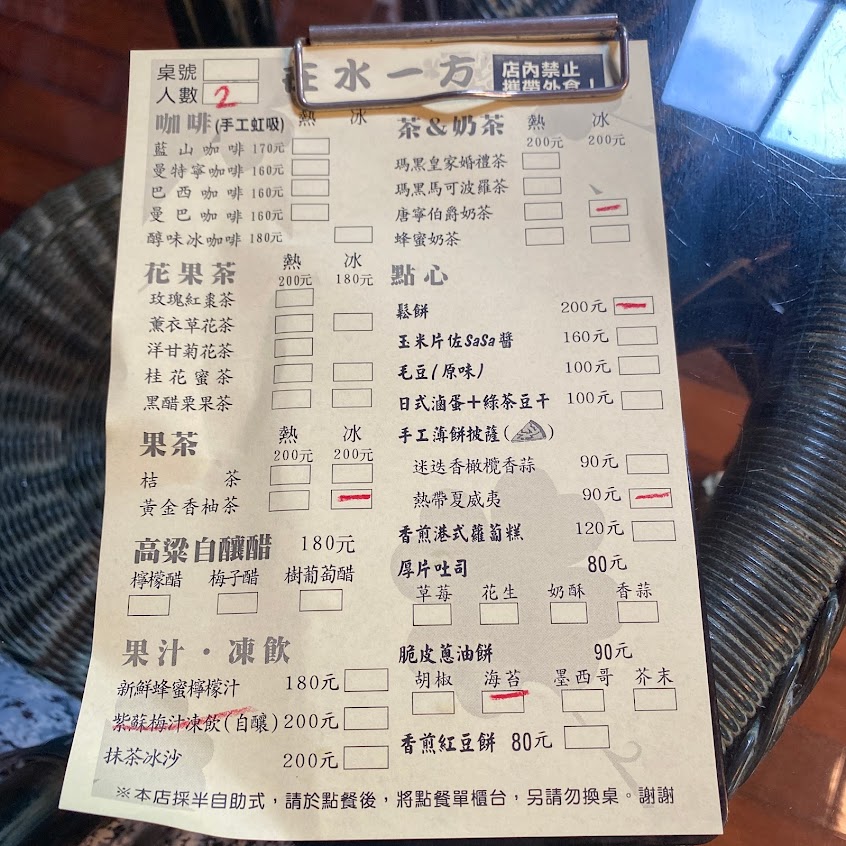 桌號
人數 2
在水一方
店內禁止
攜帶外食！
咖啡(手工虹吸) 熱 冰
藍山咖啡 170元
曼特寧咖啡 160元
巴西咖啡 160元
曼巴咖啡 160元
醇味冰咖啡 180元
花果茶 熱 冰
200元 180元
玫瑰紅棗茶
薰衣草花茶
洋甘菊花茶
桂花蜜茶
黑醋栗果茶
果茶 熱 冰
200元 200元
桔茶
黃金香柚茶
高粱自釀醋 180元
檸檬醋 梅子醋 樹葡萄醋
果汁・凍飲
新鮮蜂蜜檸檬汁 180元
紫蘇梅汁凍飲(自釀) 200元
抹茶冰沙 200元
茶&奶茶 熱 冰
200元 200元
瑪黑皇家婚禮茶
瑪黑馬可波羅茶
唐寧伯爵奶茶
蜂蜜奶茶
點心
鬆餅 200元
玉米片佐SaSa醬 160元
毛豆(原味) 100元
日式滷蛋+綠茶豆干 100元
手工薄餅披薩( )
迷迭香橄欖香蒜 90元
熱帶夏威夷 90元
香煎港式蘿蔔糕 120元
厚片吐司 80元
草莓 花生 奶酥 香蒜
脆皮蔥油餅 90元
胡椒 海苔 墨西哥 芥末
香煎紅豆餅 80元
※本店採半自助式，請於點餐後，將點餐單櫃台，另請勿換桌。謝謝